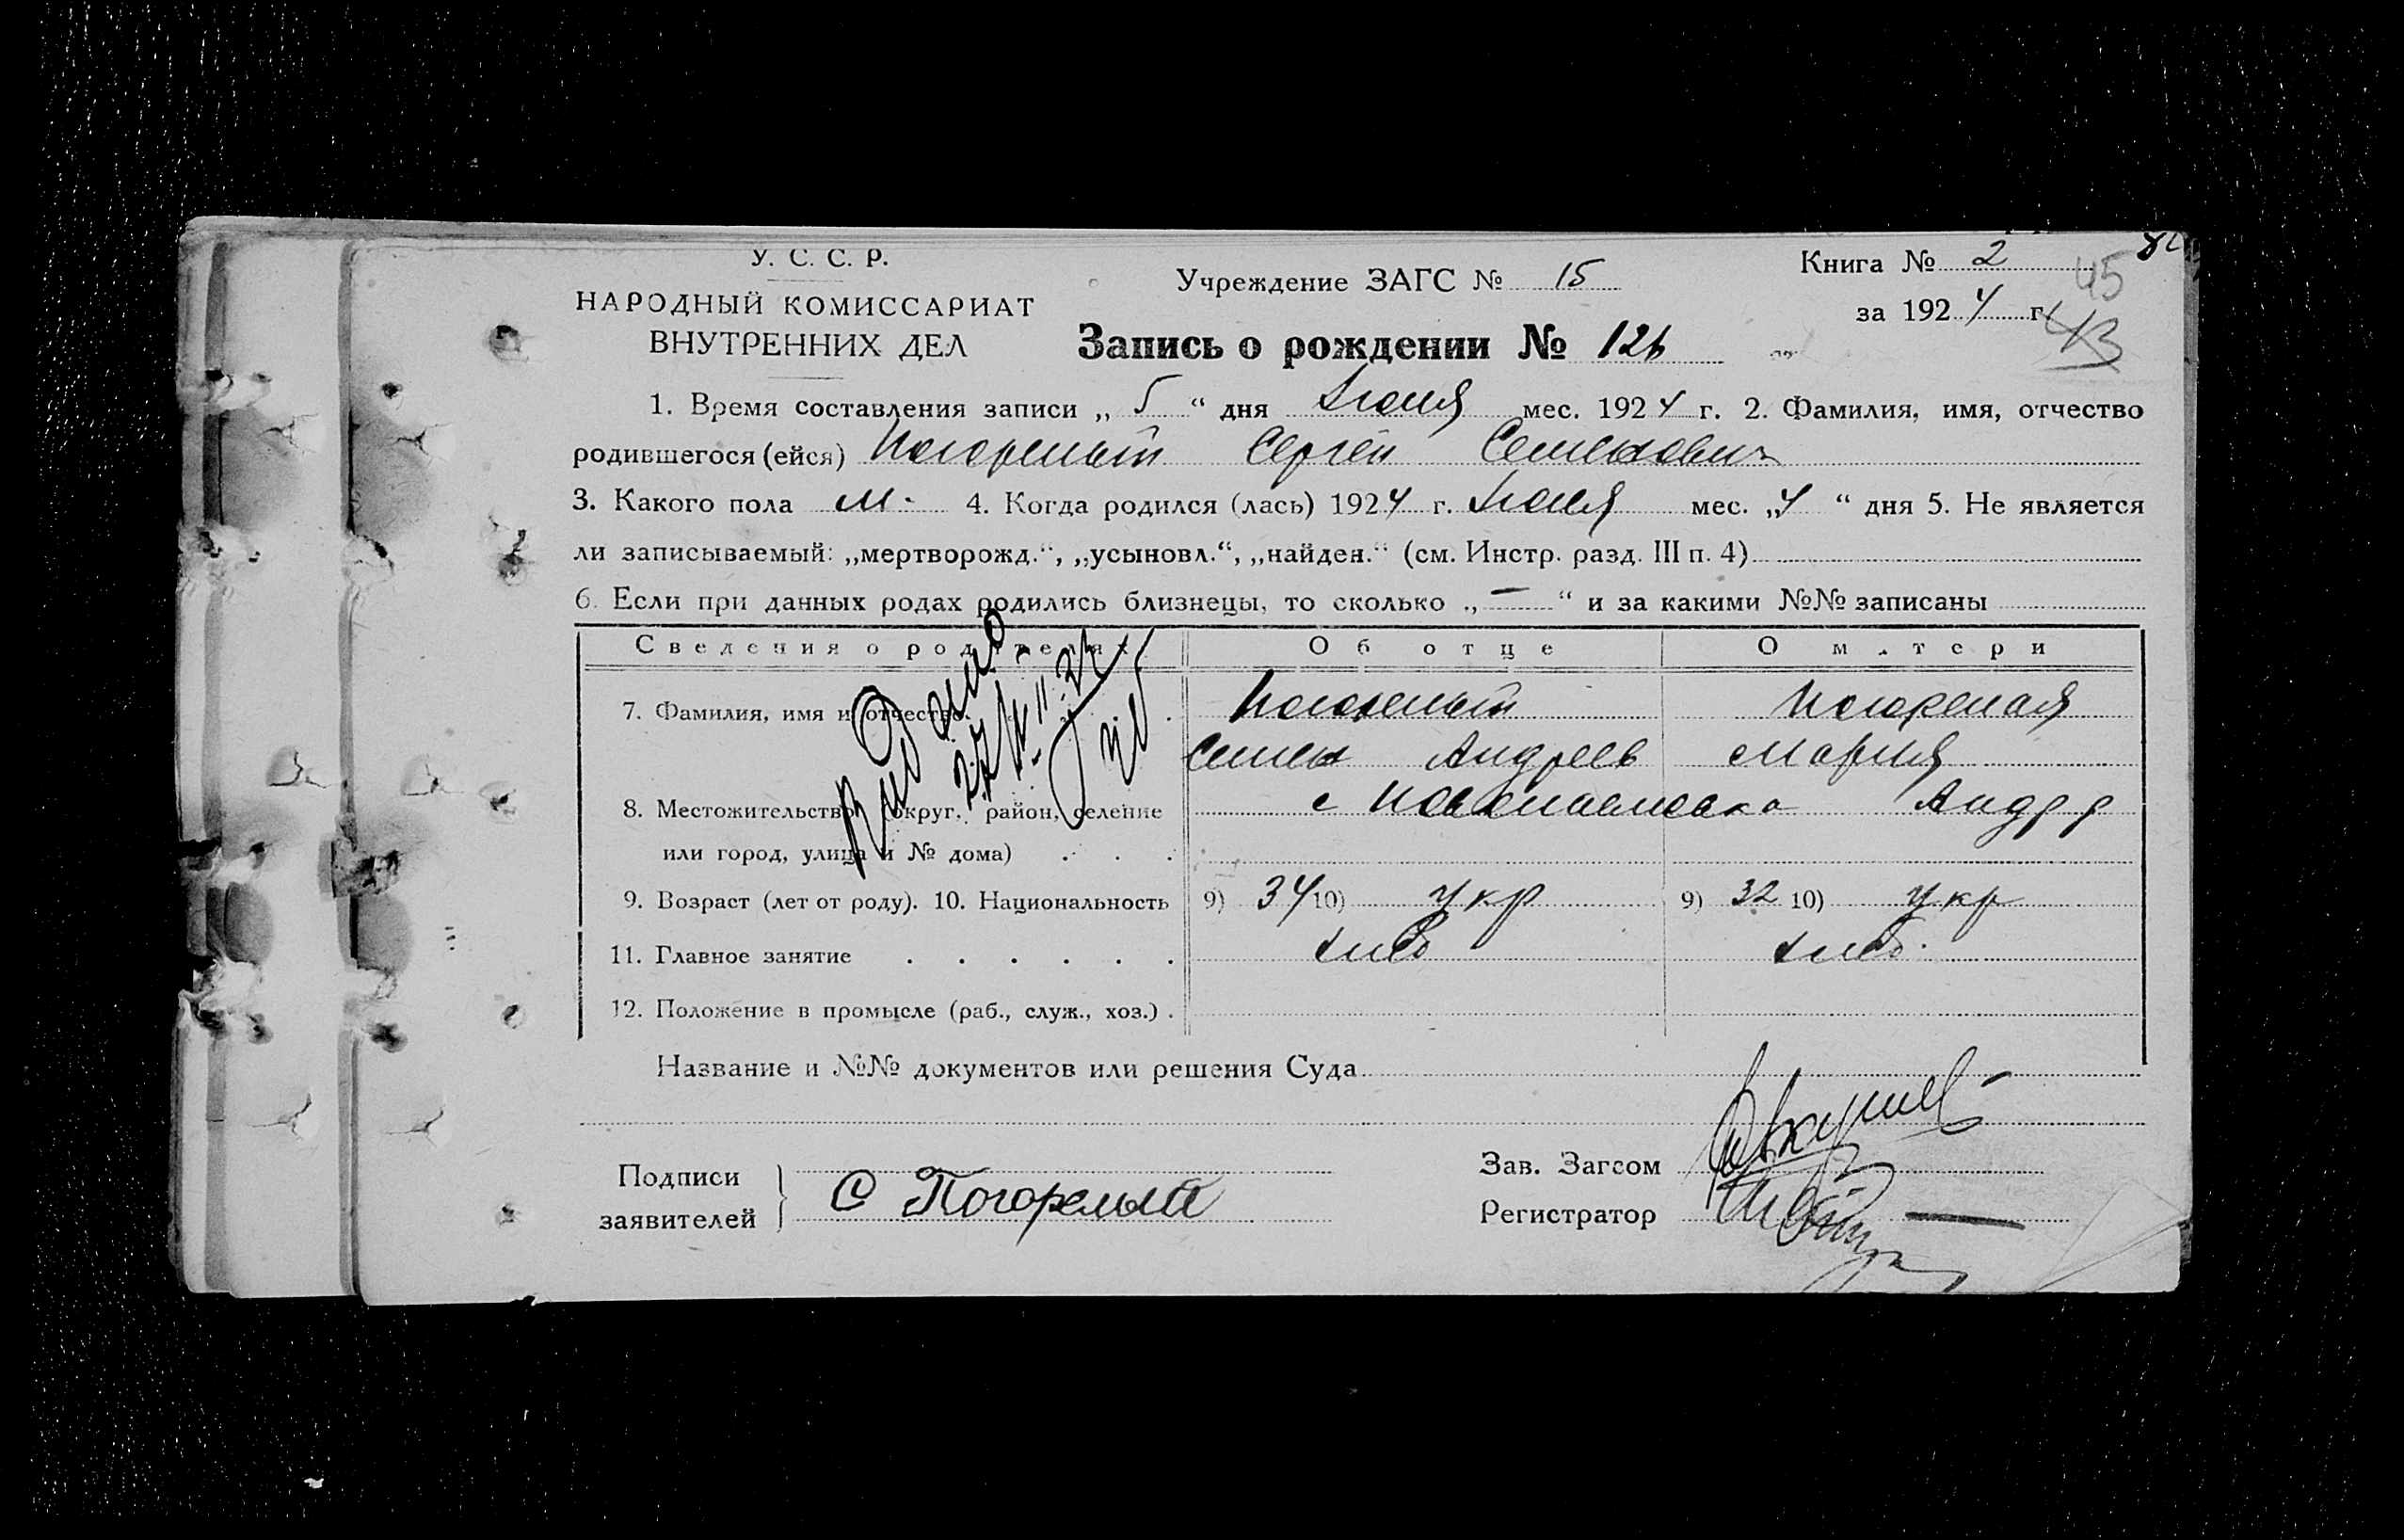 У. С. С. Р.
НАРОДНЫЙ КОМИССАРИАТ
ВНУТРЕННИХ ДЕЛ
Учреждение ЗАГС № 15
Книга № 2
за 1924 г.
45
43
Запись о рождении № 126
1. Время составления записи „ 5 “ дня Июня мес. 1924 г. 2. Фамилия, имя, отчество
родившегося (ейся) Погорелый Сергей Семенович
3. Какого пола м. 4. Когда родился (лась) 1924 г. Июня мес. „4 “ дня 5. Не является
ли записываемый: „мертворожд.“, „усыновл.“, „найден.“ (см. Инстр. разд. III п. 4)
6. Если при данных родах родились близнецы, то сколько „ — “ и за какими №№ записаны
Сведения о родителях Об отце О матери
7. Фамилия, имя и отчество. Погорелый Погорелая
Семен Андреев Мария
8. Местожительство (округ, район, селение с Андр
или город, улица и № дома)
9. Возраст (лет от роду). 10. Национальность 9) 34 10) укр 9) 32 10) укр
11. Главное занятие хлеб хлеб.
12. Положение в промысле (раб., служ., хоз.)
Название и №№ документов или решения Суда
Подписи
заявителей С Погорелый
Зав. Загсом
Регистратор